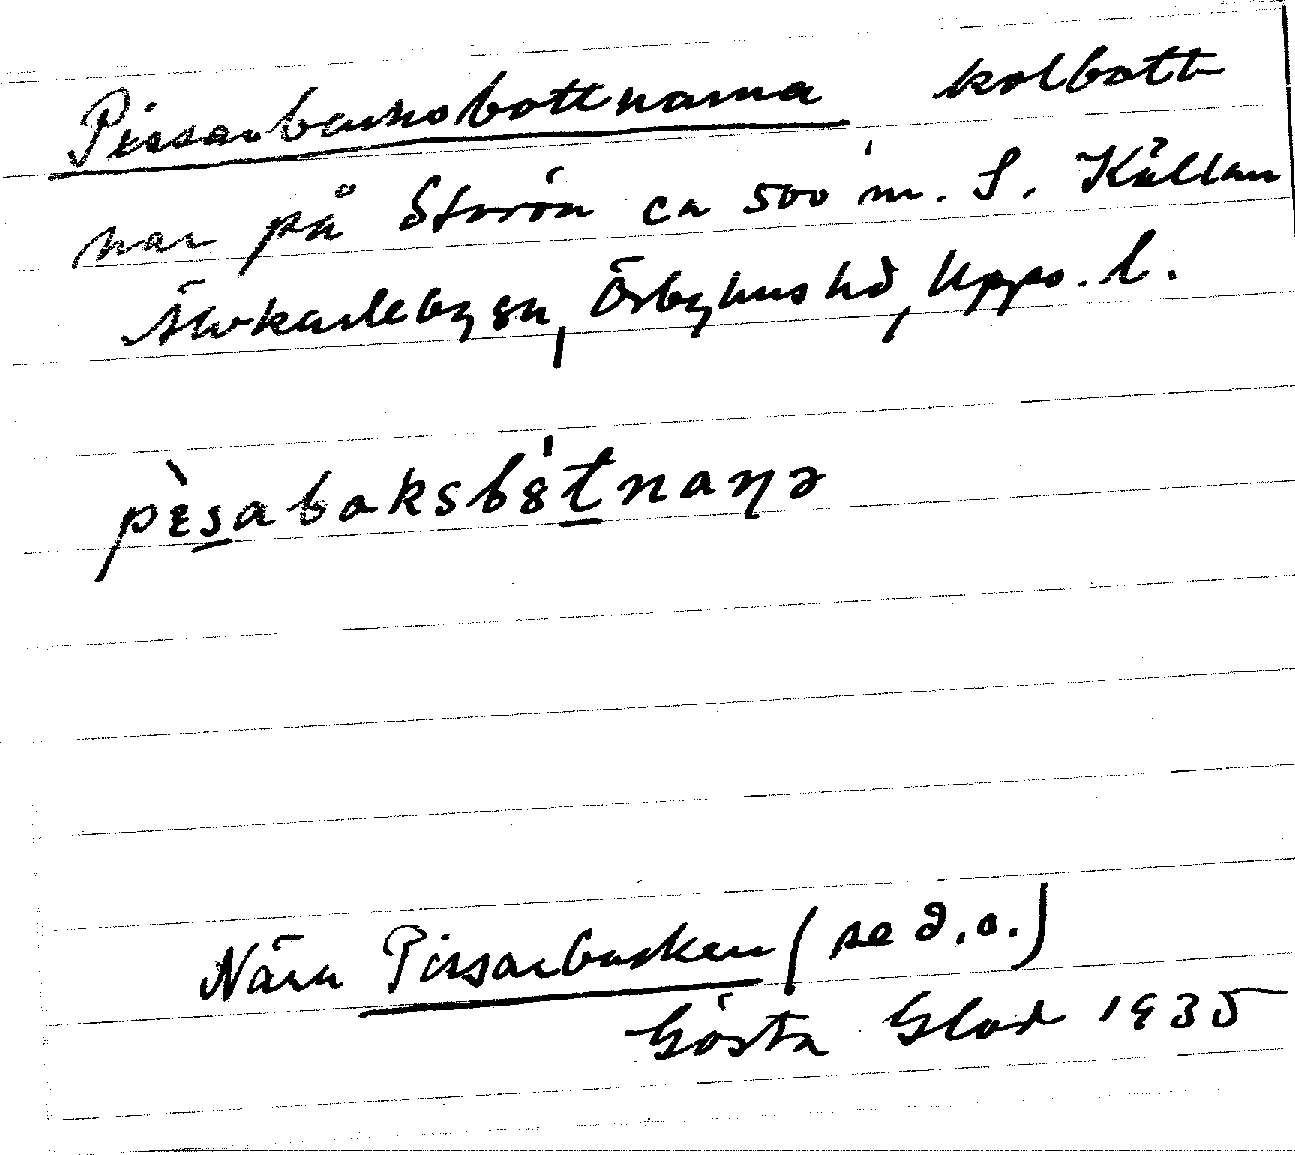 Pissarbacksbottnarna kolbott
nar på Storön ca 500 m. S. Kullan
Älvkarleby sn, Örbyhus hd, Upps. l.
pɛ̀s̲abaksbȣ́t̲naŋə
Nära Pissarbacken (se d. o.)
Gösta Glad 1935